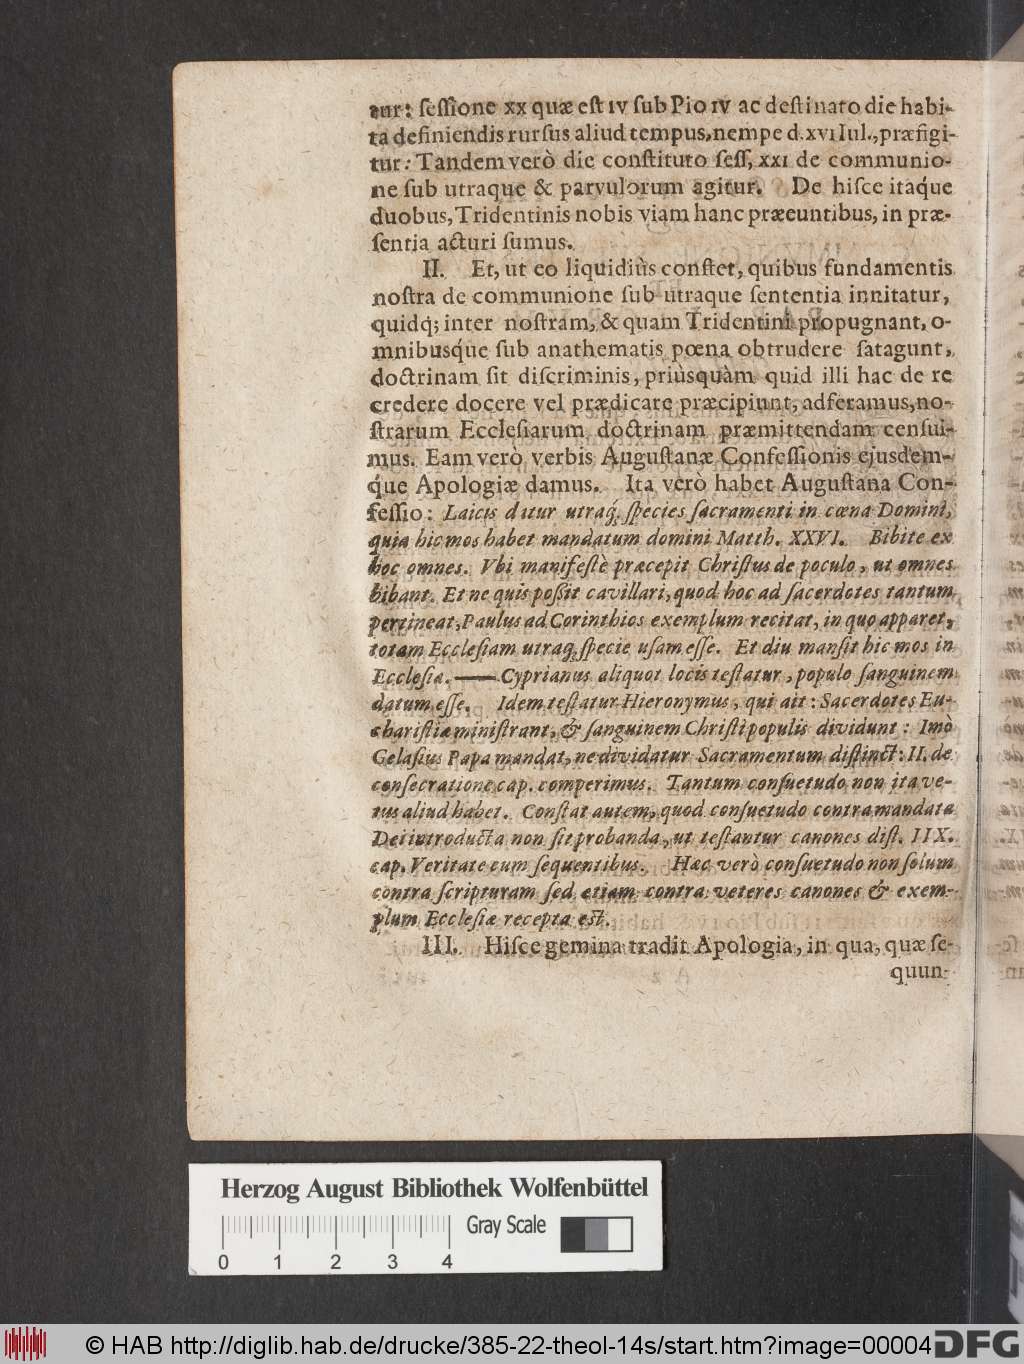 tur: ſeſſione xx quæ eſt iv ſub Pio iv ac deſtinato die habi-
ta definiendis rurſus aliud tempus, nempe d. xvi Iul., præfigi-
tur: Tandem verò die conſtituto ſeſſ, xxi de communio-
ne ſub utraque & parvulorum agitur. De hiſce itaq́ue
duobus, Tridentinis nobis viam hanc præeuntibus, in præ-
ſentia acturi ſumus.
II. Et, ut eo liquidiùs conſtet, quibus fundamentis
noſtra de communione ſub utraque ſententia innitatur,
quidq́; inter noſtram, & quam Tridentini propugnant, o-
mnibusq́ue ſub anathematis pœna obtrudere ſatagunt,
doctrinam ſit diſcriminis, priùsquàm quid illi hac de re
credere docere vel prædicare præcipiunt, adferamus, no-
ſtrarum Eccleſiarum doctrinam præmittendam cenſui-
mus. Eam verò verbis Auguſtanæ Confeſſionis ejusdem-
q́ue Apologiæ damus. Ita verò habet Auguſtana Con-
feſſio: Laicis datur utraq́, ſpecies ſacramenti in cœna Domini,
quia hic mos habet mandatum domini Matth. XXVI. Bibite ex
hoc omnes. Vbi manifeſtè præcepit Chriſtus de poculo, ut omnes
bibant. Et ne quis poſſit cavillari, quod hoc ad ſacerdotes tantum
pertineat, Paulus ad Corinthios exemplum recitat, in quo apparet,
totam Eccleſiam utraq́, ſpecie uſam eſſe. Et diu manſit hic mos in
Eccleſia. —— Cyprianus aliquot locis teſtatur, populo ſanguinem
datum eſſe. Idem teſtatur Hieronymus, qui ait: Sacerdotes Eu-
chariſtiæ miniſtrant, & ſanguinem Chriſti populis dividunt: Imò
Gelaſius Papa mandat, ne dividatur Sacramentum diſtinct: II. de
conſecratione cap. comperimus. Tantum conſuetudo non ita ve-
tus aliud habet. Conſtat autem, quod conſuetudo contra mandata
Dei introducta non ſit probanda, ut teſtantur canones diſt. IIX.
cap. Veritate cum ſequentibus. Hæc verò conſuetudo non ſolum
contra ſcripturam ſed etiam contra veteres canones & exem-
plum Eccleſiæ recepta eſt.
III. Hiſce gemina tradit Apologia, in qua, quæ ſe-
quun-
Herzog August Bibliothek Wolfenbüttel
Gray Scale
0 1 2 3 4
© HAB http://diglib.hab.de/drucke/385-22-theol-14s/start.htm?image=00004 DFG